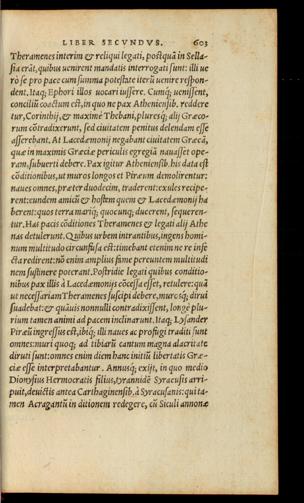 LIBER SECVNDVS. 603
Theramenes interim & reliqui legati, postquā in Sella-
sia erāt, quibus uenirent mandatis interrogati sunt: illi ue
rò se pro pace cum summa potestate iterū uenire respon-
dent. Itaq; Ephori illos uocari iussere. Cumq; uenissent,
conciliū coactum est, in quo ne pax Atheniensib. reddere
tur, Corinthij, & maximè Thebani, pluresq; alij Græco-
rum cōtradixerunt, sed ciuitatem penitus delendam esse
asserebant. At Lacedæmonij negabant ciuitatem Græcā,
quæ in maximis Græciæ periculis egregiā nauasset ope-
ram, subuerti debere. Pax igitur Atheniensib. his data est
cōditionibus, ut muros longos et Piræum demolirentur:
naues omnes, præter duodecim, traderent: exules recipe-
rent: eundem amicū & hostem quem & Lacedæmonij ha
berent: quos terra mariq; quocunq; ducerent, sequeren-
tur. Has pacis cōditiones Theramenes & legati alij Athe
nas detulerunt. Quibus urbem intrantibus, ingens homi-
num multitudo circunfusa est: timebant etenim ne re infe
cta redirent: nō enim amplius fame pereuntem multitudi
nem sustinere poterant. Postridie legati quibus conditio-
nibus pax illis à Lacedæmonijs cōcessa esset, retulere: quā
ut necessariam Theramenes suscipi debere, murosq; dirui
suadebat: & quāuis nonnulli contradixissent, longè plu-
rium tamen animi ad pacem inclinarunt. Itaq; Lysander
Piræū ingressus est, ibiq; illi naues ac profugi traditi sunt
omnes: muri quoq; ad tibiarū cantum magna alacritate
diruti sunt: omnes enim diem hanc initiū libertatis Græ-
ciæ esse interpretabantur. Annusq; exijt, in quo medio
Dionysius Hermocratis filius, tyrannidē Syracusis arri-
puit, deuictis antea Carthaginensib. à Syracusanis: qui ta-
men Acragantū in ditionem redegere, cū Siculi annonæ